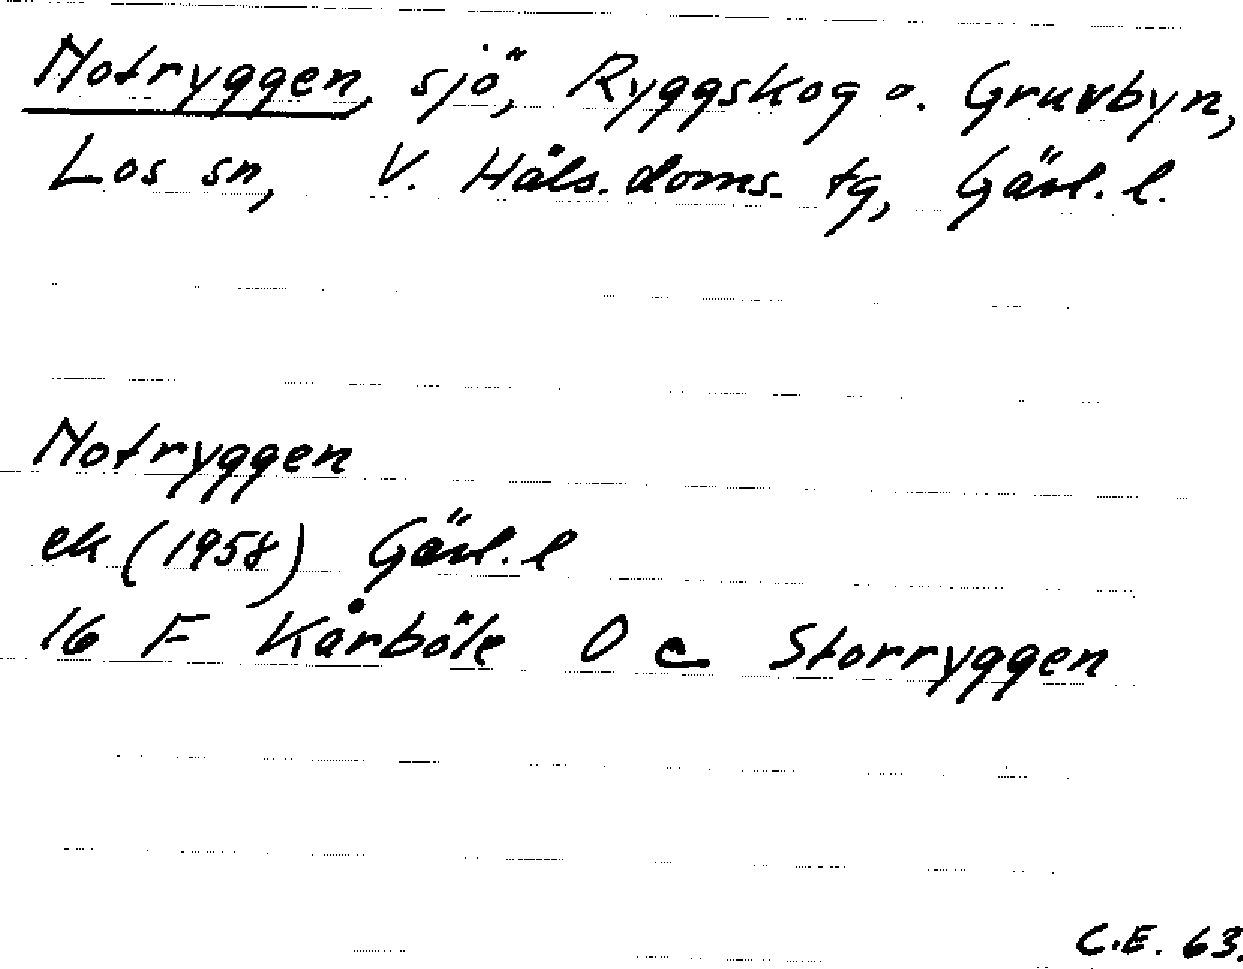 Notryggen, sjö, Ryggskog o. Gruvbyn,
Los sn, V. Häls. doms. tg, Gävl. l.
Notryggen
ek (1958) Gävl. l
16 F Kårböle O c Storryggen
C.E. 63.